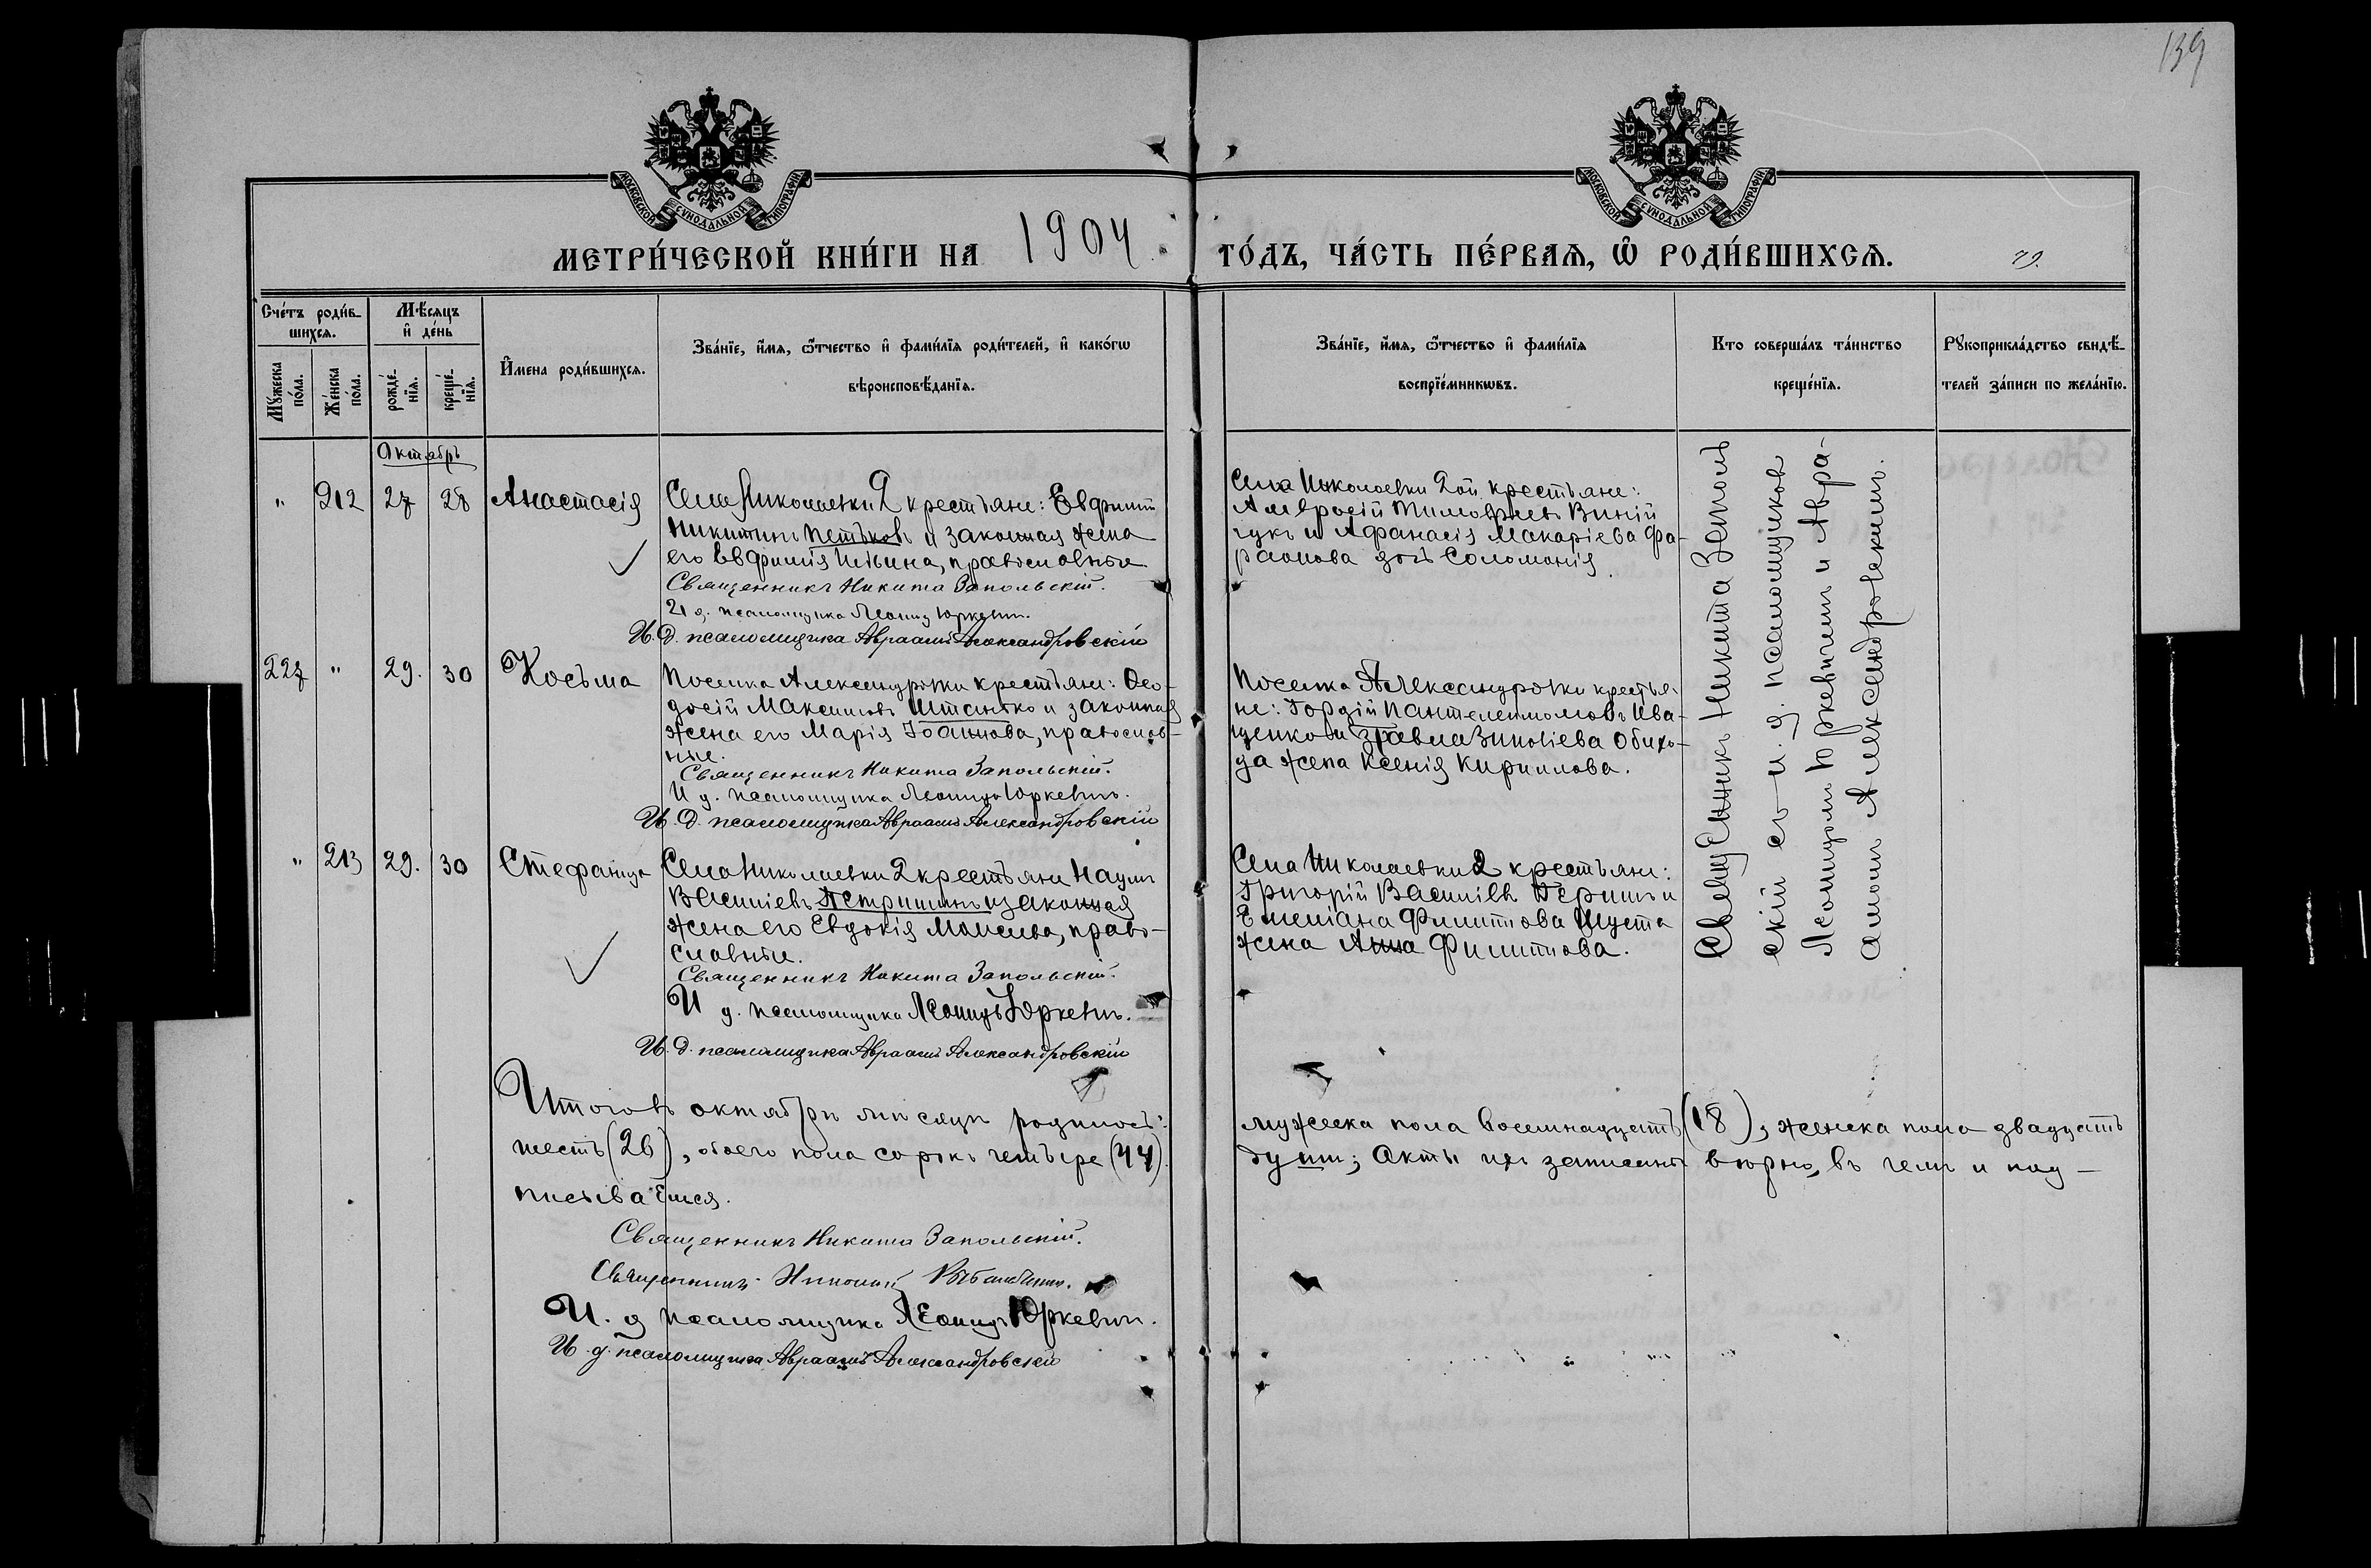 139
МОСКОВСКОЙ СѴНОДАЛЬНОЙ ТИПОГРАФІИ
МОСКОВСКОЙ СѴНОДАЛЬНОЙ ТИПОГРАФІИ
МЕТРИ́ЧЕСКОЙ КНИ́ГИ НА 1904 ГО́ДЪ, ЧА́СТЬ ПЕ́РВАѦ, Ѽ РОДИ́ВШИХСѦ. 79.
Сче́тъ роди́в-
шихсѧ.
Мꙋ́жеска
по́ла.
Же́нска
по́ла.
Мѣ́сѧцъ
и҆ де́нь
рожде́-
нїѧ.
креще́-
нїѧ.
И҆́мена роди́вшихсѧ.
Зва́нїе, и҆́мѧ, ѻ҆́тчество и҆ фами́лїѧ роди́телей, и҆ како́гѡ
вѣроисповѣ́данїѧ.
Зва́нїе, и҆́мѧ, ѻ҆́тчество и҆ фами́лїѧ
воспрїе́мникѡвъ.
Кто соверша́лъ та́инство
креще́нїѧ.
Рꙋкоприкла́дство свидѣ́-
телей за́писи по жела́нїю.
Октябрь
" 212 27 28 Анастасія
Села Николаевки 2 крестьяне: Евфимій
Никитинъ Петьковъ и законная жена
его Евфимія Ильина, православные
Священникъ Никита Запольскій.
И д. псаломщика Леонидъ Юркевичъ.
И. д. псаломщика Авраамъ Александровскій
Села Николаевки 2ой крестьяне:
Амвросій Тимофеевъ Виній
чукъ и Афанасія Макаріева Фа-
раонова дочь Соломонія
227 " 29. 30 Косьма
Поселка Александровки крестьяне: Ѳео-
досій Максимовъ Штанько и законная
жена его Марія Іоаннова, православ-
ные.
Священникъ Никита Запольскій.
И д. псаломщика Леонидъ Юркевичъ.
И. д. псаломщика Авраамъ Александровскій
Поселка Александровки крестья-
не: Гордій Пантелеимоновъ Ива-
щенко и Зиновіева Обихо-
да жена Ксенія Кириллова.
" 213 29. 30 Стефанида
Села Николаевки 2 крестьяне Наумъ
Василіевъ Петришинъ и законная
жена его Евдокія Моисеева, право-
славные.
Священникъ Никита Запольскій.
И д. псаломщика Леонидъ Юркевичъ.
И. д. псаломщика Авраамъ Александровскій
Села Николаевки 2 крестьяне:
Григорій Василіевъ и
Емеліана Филиппова Шуста
жена Анна Филиппова.
Священникъ Никита Заполь
скій съ и. д. псаломщиковъ
Леонидомъ Юркевичемъ и Авра-
амомъ Александровскимъ.
Итого въ октябрѣ мѣсяцѣ родилось: мужеска пола восемнадцать (18), женска пола двадцать
шесть (26), обоего пола сорокъ четыре (44) душъ; Акты ихъ записаны вѣрно, въ чемъ и под-
писываемся.
Священникъ Никита Запольскій.
Священникъ Николай
И. д псаломщика Леонидъ Юркевичъ.
И. д. псаломщика Авраамъ Александровскій